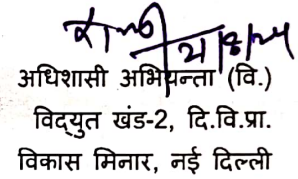 अधिशासी अभियन्ता (वि.)
विद्युत खंड-2, दि.वि.प्रा.
विकास मिनार, नई दिल्ली